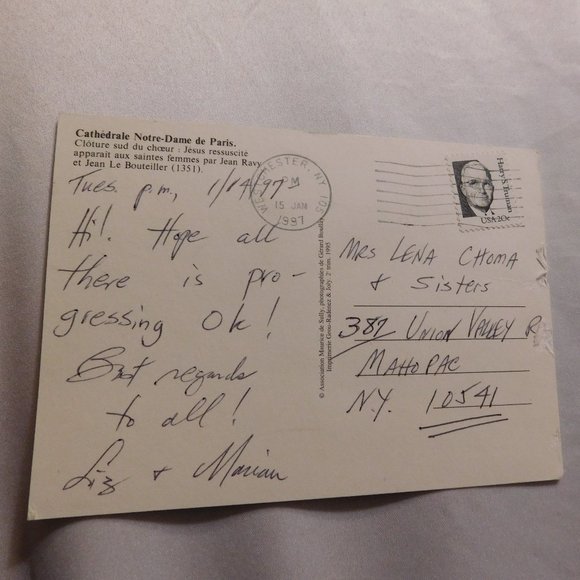 Cathédrale Notre-Dame de Paris.
Clôture sud du chœur : Jésus ressuscité
apparait aux saintes femmes par Jean Ravy
et Jean Le Bouteiller (1351).
Tues. p.m., 1/14/97
Hi! Hope all
there is pro-
gressing OK!
Best regards
to all!
Liz & Marian
© Association Maurice de Sully, photographies de Gérard Boullay
Imprimerie Geou-Radenez & Joly. 2e trim. 1995
WESTCHESTER, NY 105
PM
15 JAN
1997
Harry S. Truman
USA 20c
MRS LENA CHOMA
& Sisters
387 UNION VALLEY R
MAHOPAC
N.Y. 10541